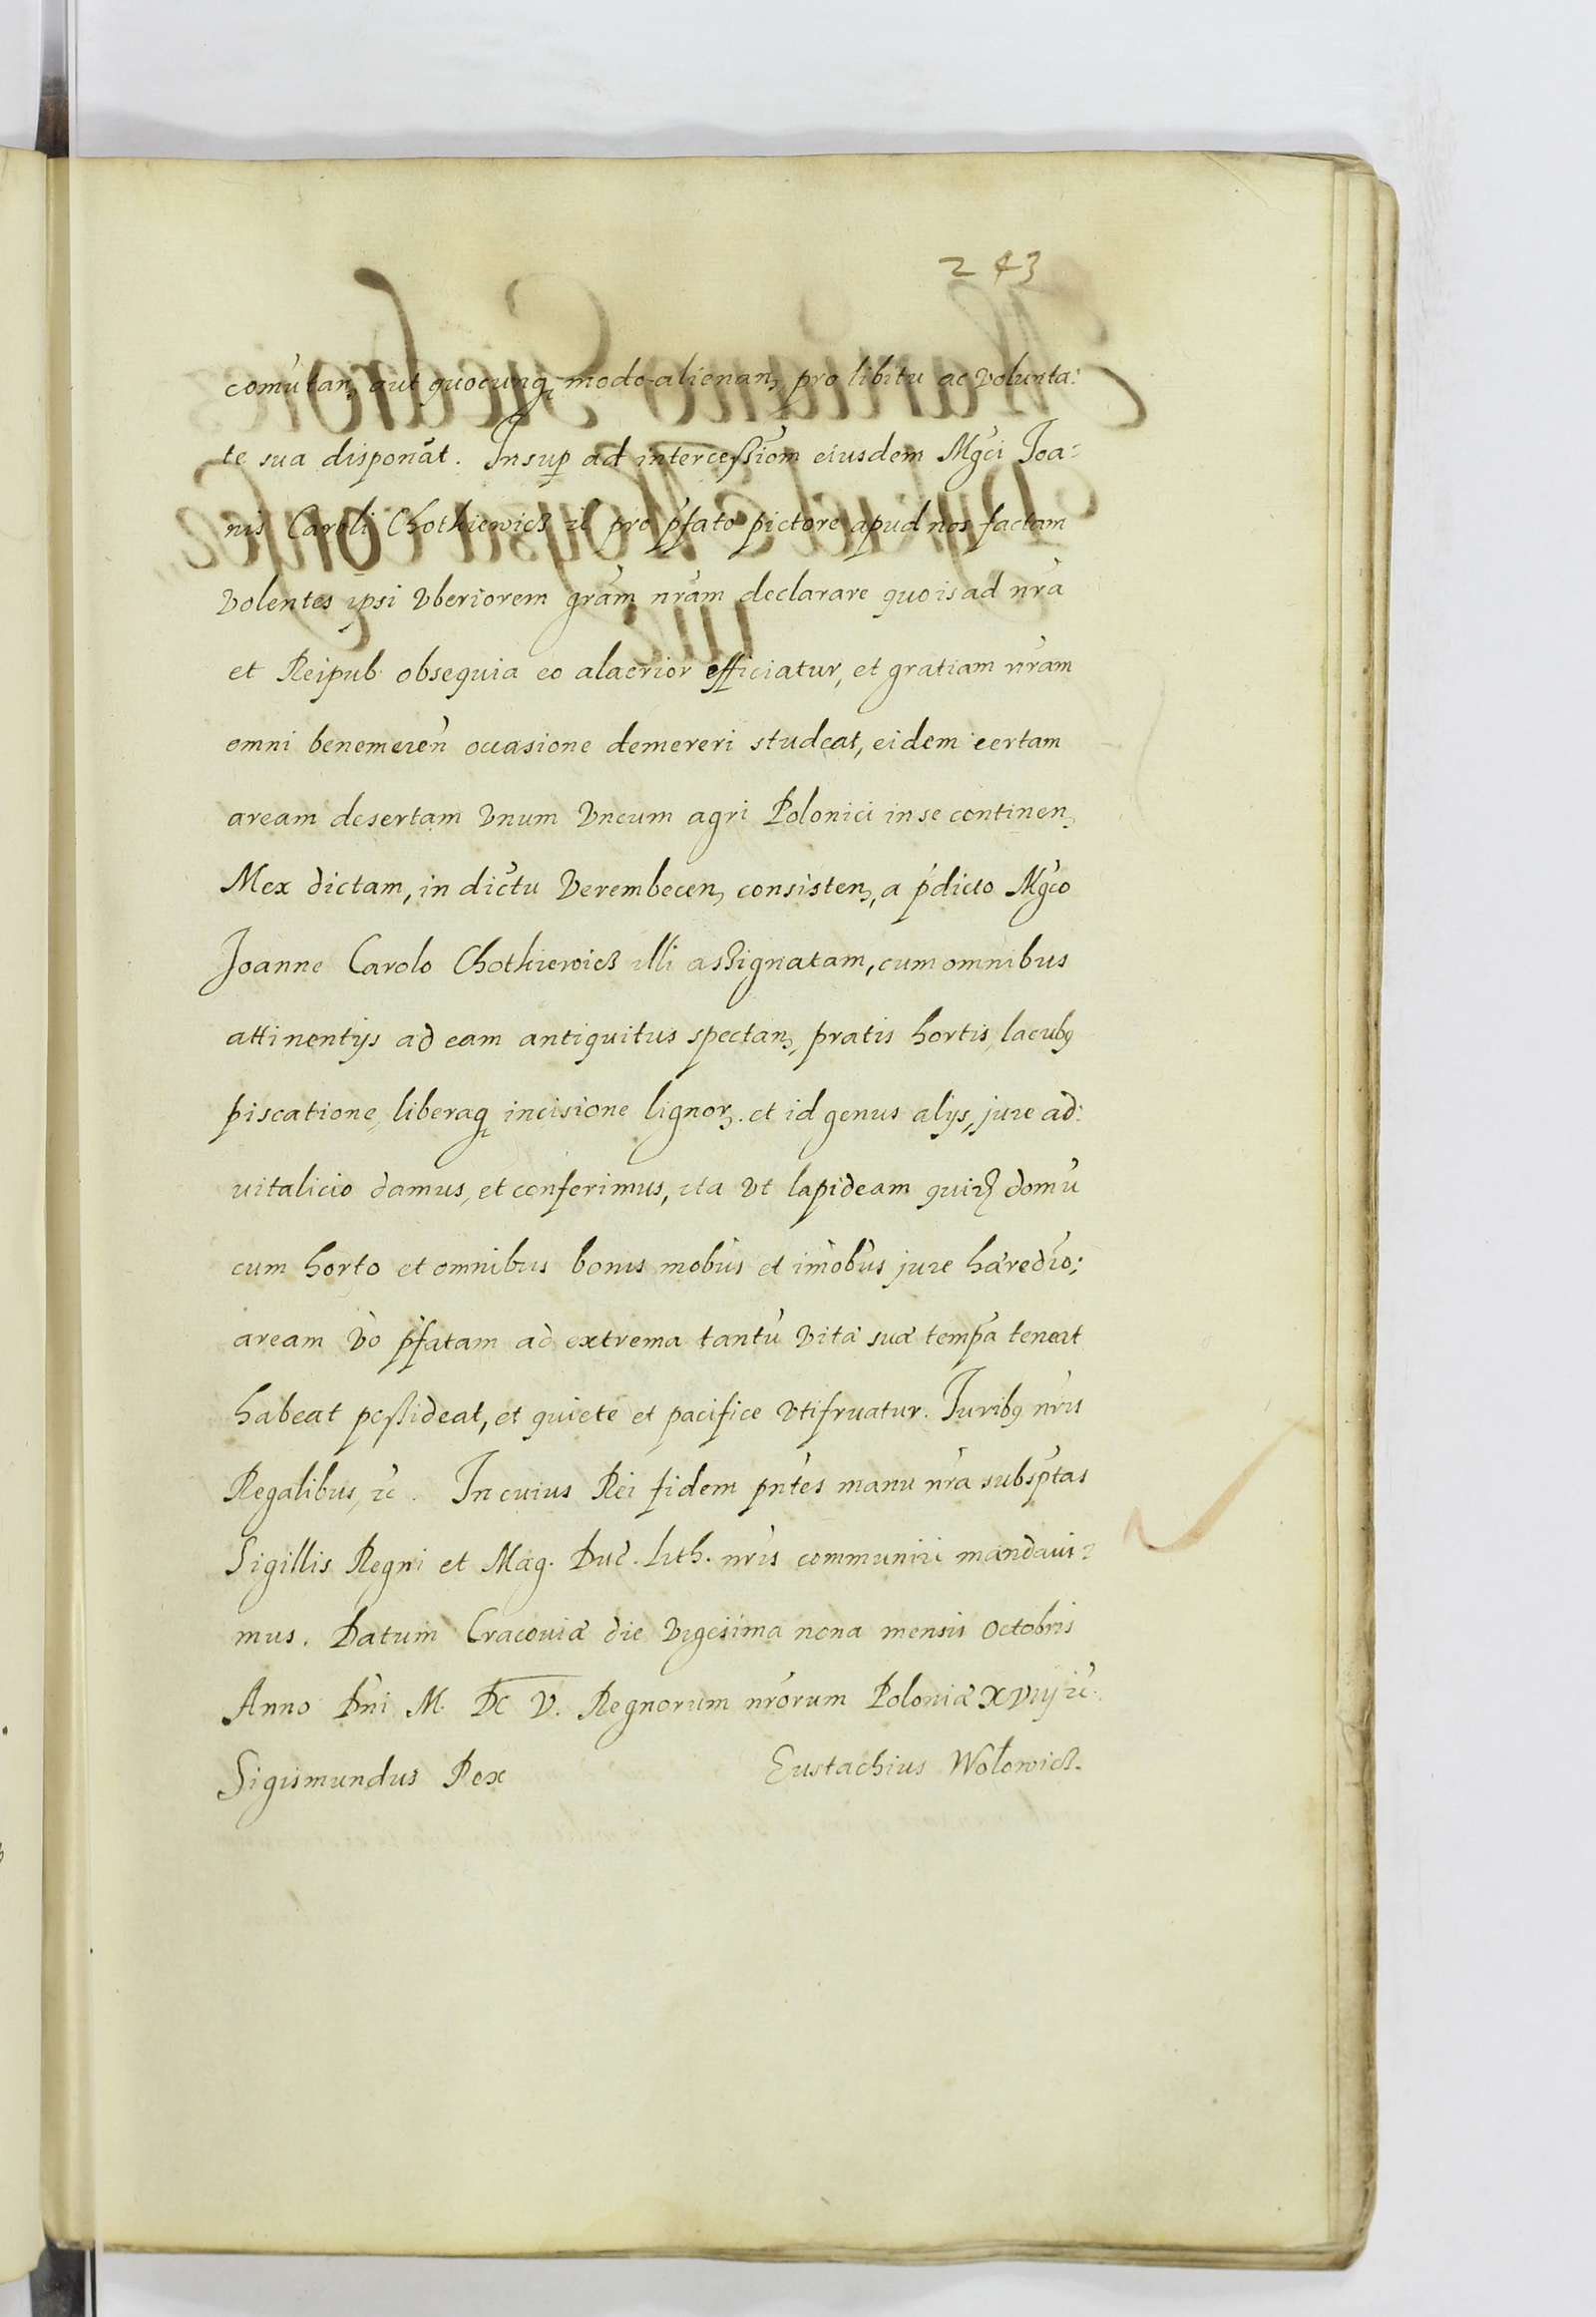 243
comutan, aut quocunq modo alienan, pro libitu ac volunta:
te sua disponāt. Insup ad intercessiom eiusdem Mgci Joa:
nis Caroli Chotkiewicz zc pro pfato pictore apud nos factam
volentes ipsi vberiorem gram nram declarare quo is ad nra
et Reipub obsequia eo alacrior efficiatur, et gratiam nram
omni benemeren occasione demereri studeat, eidem certam
aream desertam vnum vncum agri Polonici in se continen,
Mex dictam, in dictu Verembecen, consisten, a pdicto Mgco
Joanne Carolo Chotkiewicz illi assignatam, cum omnibus
attinentijs ad eam antiquitus spectan, pratis hortis, lacubq
piscatione, liberaq incisione lignor. et id genus alijs, jure ad:
vitalicio damus, et conferimus, ita vt lapideam quid domu
cum horto et omnibus bonis mobus et imobus jure hæredio;
aream vo pfatam ad extrema tantu vitæ suæ tempa teneat
habeat possideat, et quiete et pacifice vtifruatur. Juribq nris
Regalibus, zc. In cuius Rei fidem pntes manu nra subsptas
Sigillis Regni et Mag. Duc. Lith. nris communiri mandaui:
mus. Datum Cracoviæ die vigesima nona mensis Octobris
Anno Dni M. DC V. Regnorum nrorum Poloniæ XVIIJ zc.
Sigismundus Rex Eustachius Wołowicz.